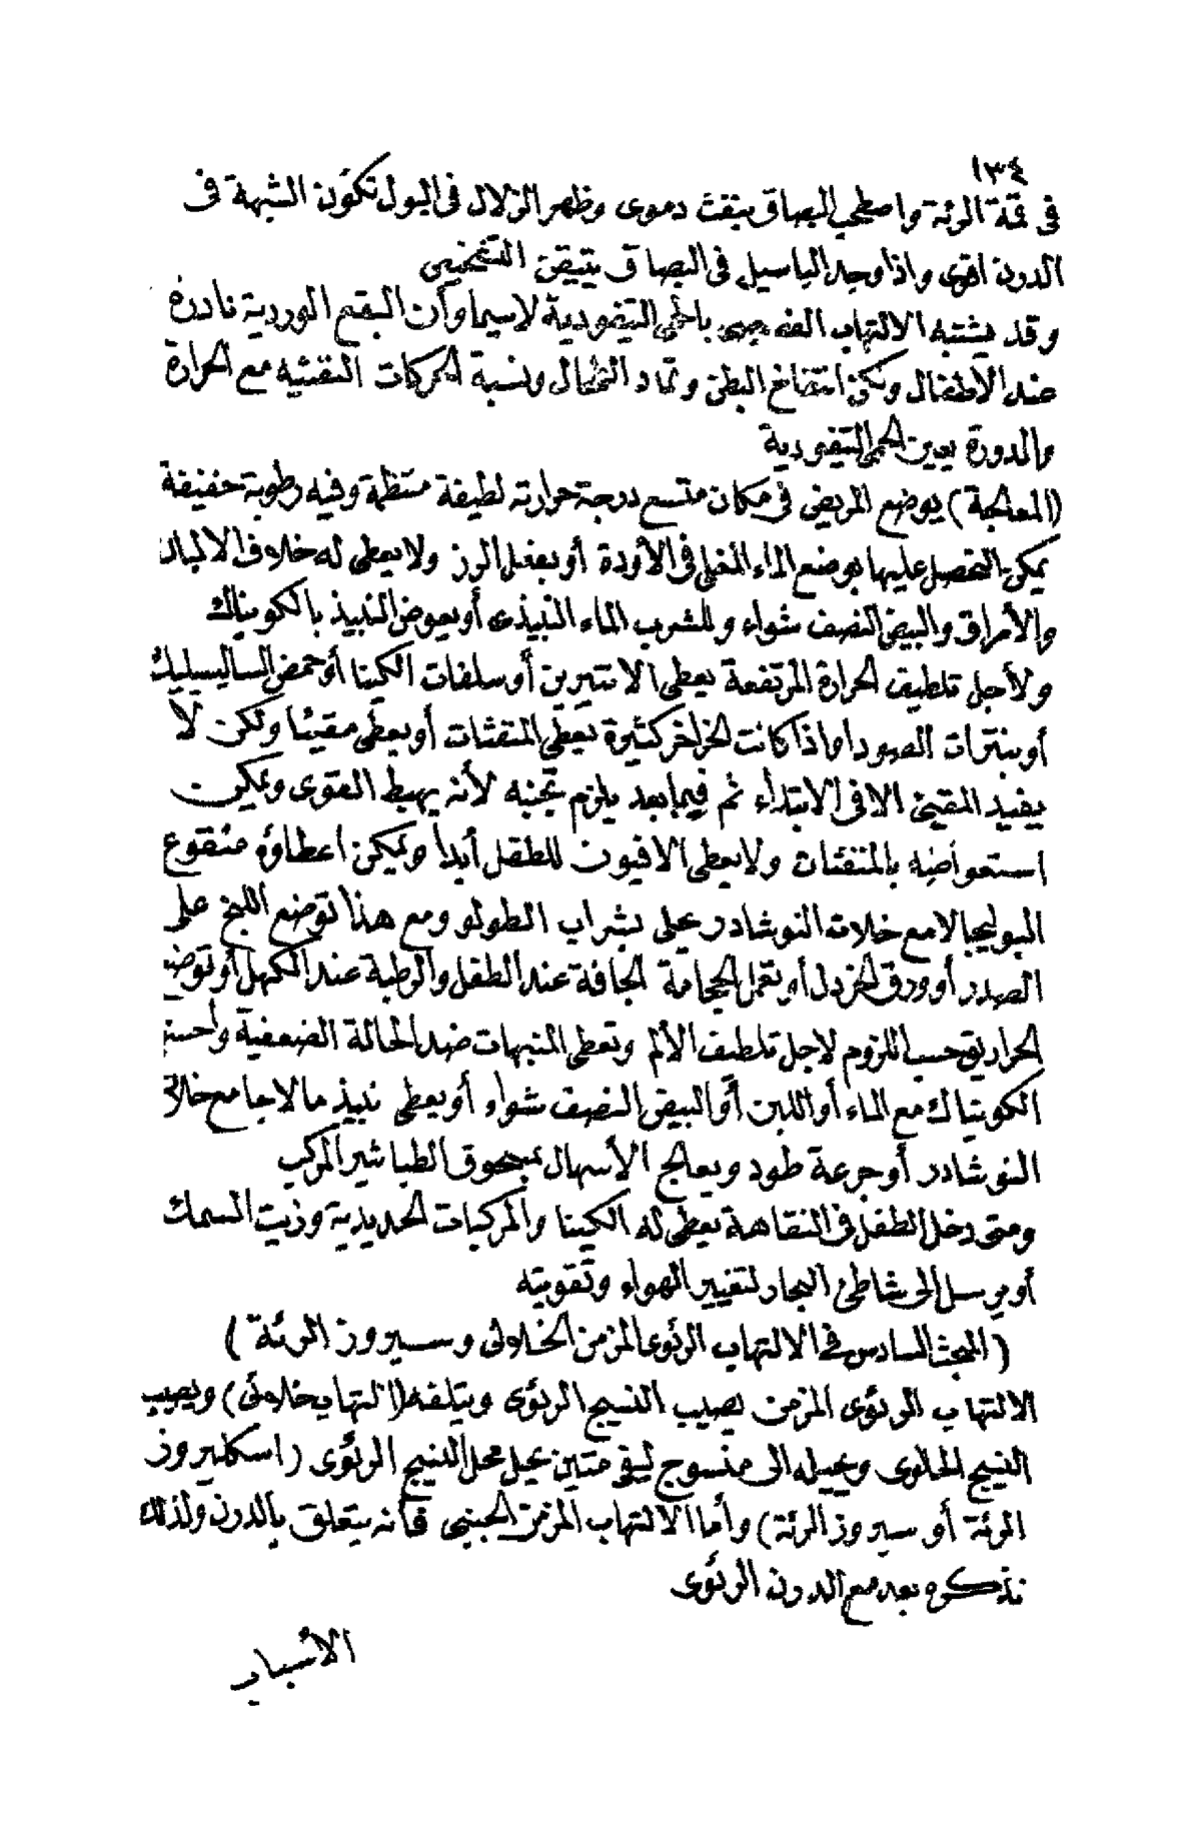 ١٣٤
فى قمة الرئة واصطحب البصاق بنفث دموى وظهر الزلال فى البول تكون الشبهة فى
الدرن اقوى واذا وجد الباسيل فى البصاق يتيقن التشخيص
وقد يشتبه الالتهاب الفصيصى بالحمى التيفودية لاسيما وأن البقع الوردية نادرة
عند الأطفال ولكن انتفاخ البطن وتمدد الطحال ونسبة الحركات التنفسية مع الحرارة
والدورة يعين الحمى التيفودية
(المعالجة) يوضع المريض فى مكان متسع درجة حرارته لطيفة منتظمة وفيه رطوبة خفيفة
يمكن التحصل عليها بوضع الماء المغلى فى الأودة أو بفعل الرز ولا يعطى له خلاف الالبان
والأمراق والبيض النصف شواء وللشرب الماء النبيذى أو يعوض النبيذ بالكونياك
ولأجل تلطيف الحرارة المرتفعة يعطى الانتيبرين أو سلفات الكينا أو حمض الساليسيليك
أو بنزات الصودا واذا كانت الخراخر كثيرة تعطى المنفثات أو يعطى مقيئا ولكن لا
يفيد المقيئ الا فى الابتداء ثم فيما بعد يلزم تجنبه لأنه يهبط القوى ويمكن
استعواضه بالمنفثات ولا يعطى الافيون للطفل أبدا ويمكن اعطاؤه منقوع
البوليجالا مع خلات النوشادر على شراب الطولو ومع هذا توضع اللبخ على
الصدر أو ورق الخردل أو تعمل الحجامة الجافة عند الطفل والرطبة عند الكهل أو توضع
الحراريق حسب اللزوم لاجل تلطيف الألم وتعطى المنبهات ضد الحالة الضعفية وأحسنها
الكونياك مع الماء أو اللبن أو البيض النصف شواء أو يعطى نبيذ مالاجا مع خلات
النوشادر أو جرعة طود ويعالج الأسهال بمسحوق الطباشير المركب
ومتى دخل الطفل فى النقاهة يعطى له الكينا والمركبات الحديدية وزيت السمك
أو يرسل الى شاطئ البحار لتغيير الهواء وتقويته
(المبحث السادس فى الالتهاب الرئوى المزمن الخلالى وسيروز الرئة)
الالتهاب الرئوى المزمن يصيب النسيج الرئوى ويتلفه (التهاب خلالى) ويصيب
النسيج الخلوى ويحيله الى منسوج ليفى متين يحل محل النسيج الرئوى (اسكليروز
الرئة أو سيروز الرئة) وأما الالتهاب المزمن الجبنى فأنه يتعلق بالدرن ولذلك
نذكره بعد مع الدرن الرئوى
الأسباب